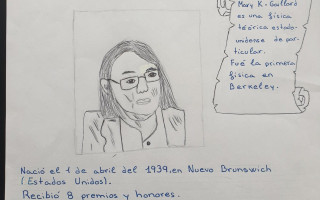 Mary K. Gaillard
es una física
teórica estado-
unidense de par-
ticular.
Fué la primera
física en
Berkeley.
Nació el 1 de abril del 1939, en Nuevo Brunswich
(Estados Unidos).
Recibió 8 premios y honores.